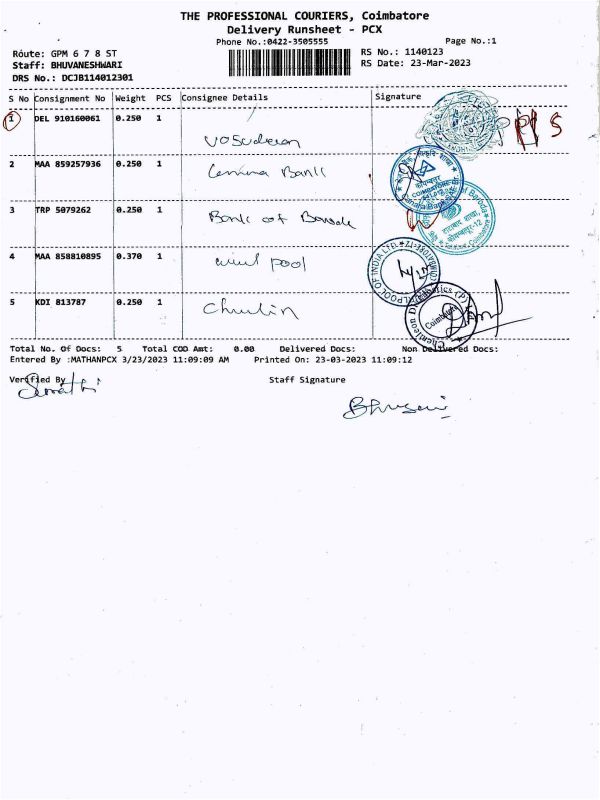 THE PROFESSIONAL COURIERS, Coimbatore
Delivery Runsheet - PCX
Phone No.:0422-3505555 Page No.:1
Route: GPM 6 7 8 ST RS No.: 1140123
Staff: BHUVANESHWARI RS Date: 23-Mar-2023
DRS No.: DCJB114012301
S No Consignment No Weight PCS Consignee Details Signature
1 DEL 910160061 0.250 1
Vasudevan
2 MAA 859257936 0.250 1
Bank
3 TRP 5079262 0.250 1
Bank of Baroda
4 MAA 858810895 0.370 1
pool
5 KDI 813787 0.250 1
Total No. Of Docs: 5 Total COD Amt: 0.00 Delivered Docs: Non Delivered Docs:
Entered By :MATHANPCX 3/23/2023 11:09:09 AM Printed On: 23-03-2023 11:09:12
Verified By Staff Signature